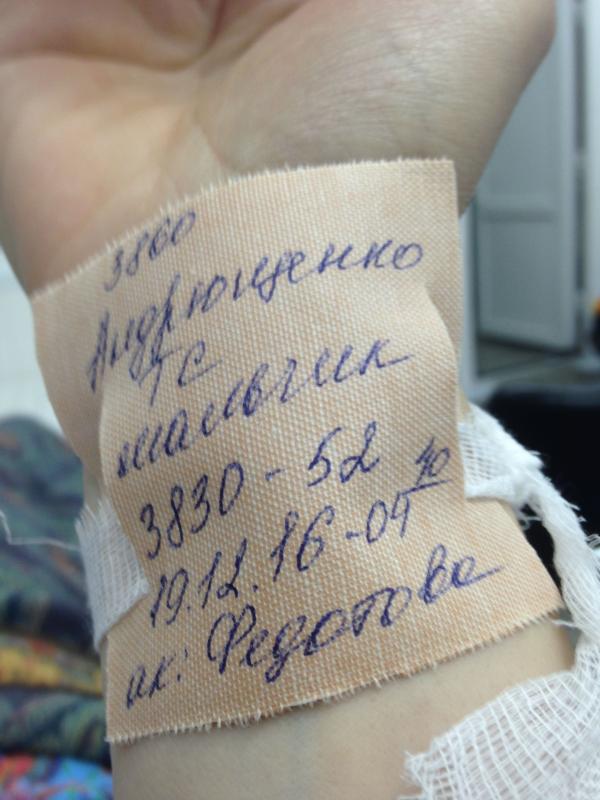 3860
Андрющенко
ТС
мальчик
3830 - 52
19.12.16 - 04 40
ак: Федотова